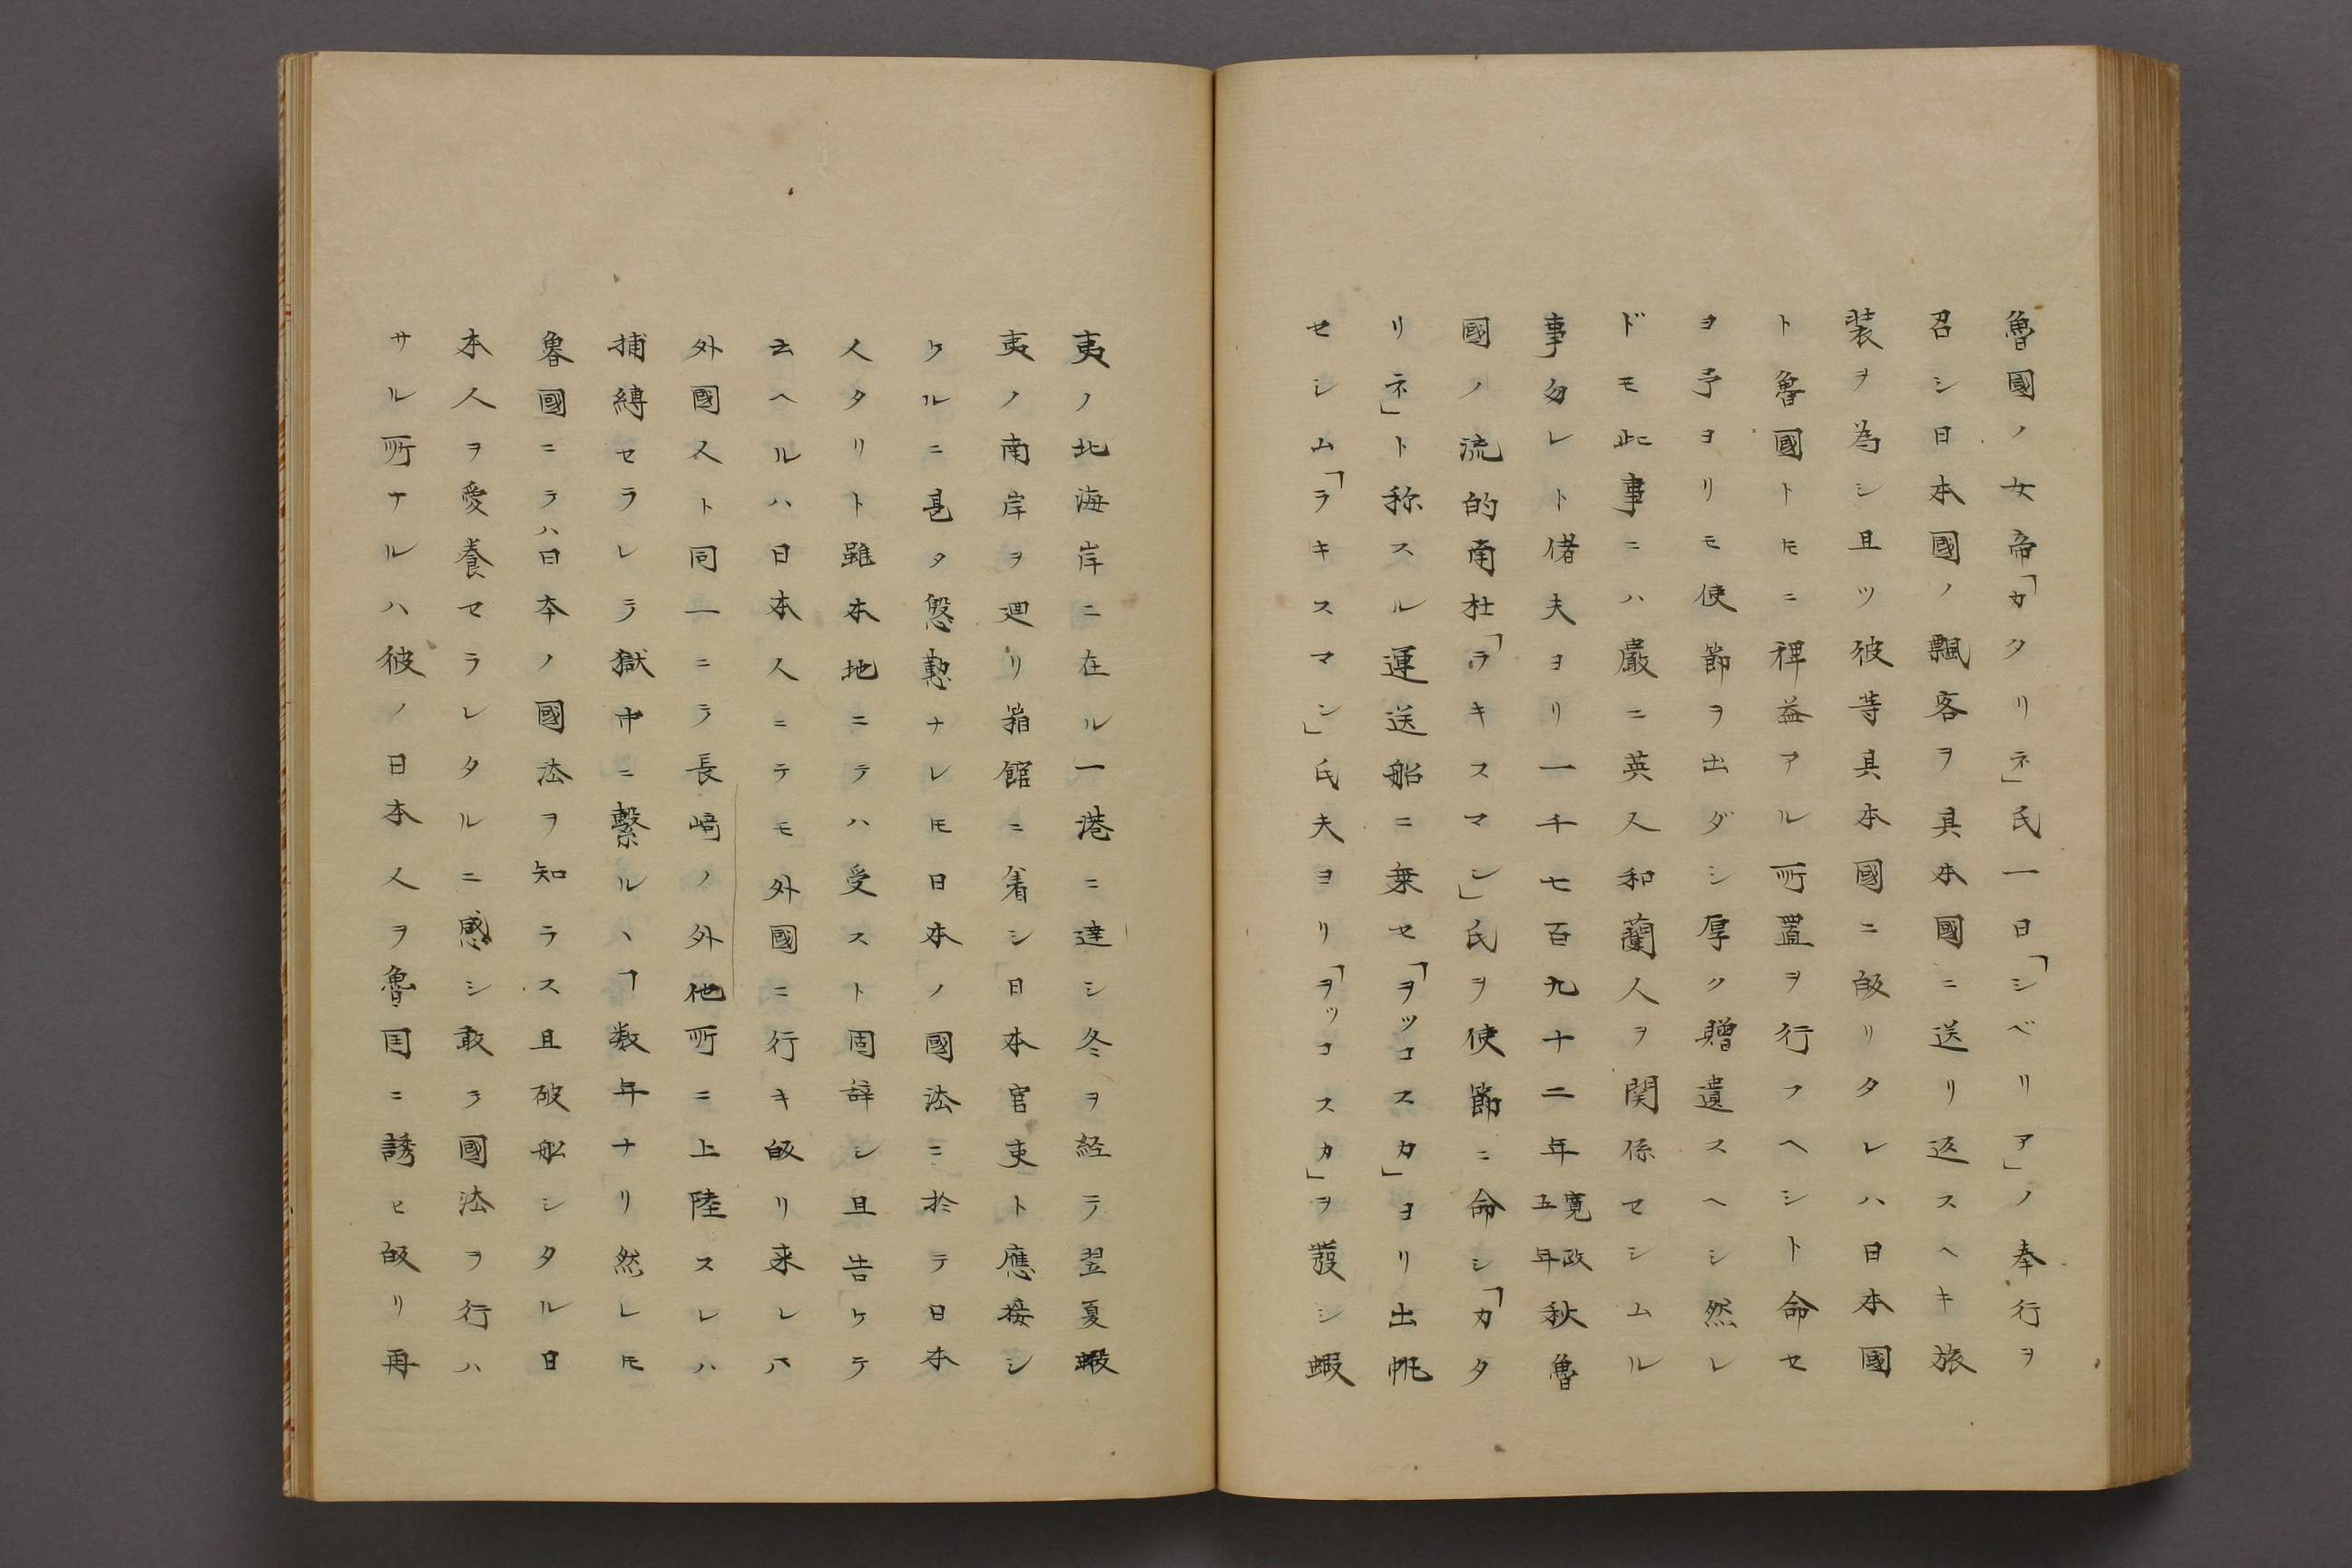 魯國ノ女帝「カタリネ」氏一日「シベリア」ノ奉行ヲ
召シ日本國ノ飄客ヲ其本國ニ送リ返スヘキ旅
装ヲ為シ且ツ彼等其本國ニ皈リタレハ日本國
ト魯國トヒニ裨益アル所置ヲ行フヘシト命セ
ヲ予ヨリモ使節ヲ出ダシ厚ク贈遺スヘシ然レ
ドモ此事ニハ嚴ニ英人和蘭人ヲ関係セシムル
事勿レト偖夫ヨリ一千七百九十二年寛政五年秋魯
國ノ流的南杜「ラキスマン」氏ヲ使節ニ命シ「カタ
リネ」ト称スル運送船ニ乗セ「ヲツコスカ」ヨリ出帆
セシム「ラキスマン」氏夫ヨリ「ヲツコスカ」ヲ發シ蝦
夷ノ北海岸ニ在ル一港ニ達シ冬ヲ経テ翌夏蝦
夷ノ南岸ヲ廻リ箱館ニ着シ日本官吏ト應接シ
ケルニ甚タ慇懃ナレ𪜈日本ノ國法ニ於テ日本
人タリト雖本地ニテハ受スト固辞シ且告ケテ
云ヘルハ日本人ニテモ外國ニ行キ皈リ来レハ
外國人ト同一ニテ長崎ノ外他所ニ上陸スレハ
捕縛セラレテ獄中ニ繫ルヽヿ数年ナリ然レ𪜈
魯國ニテハ日本ノ國法ヲ知ラス且破船シタル日
本人ヲ愛養セラレタルニ感シ敢テ國法ヲ行ハ
サル所ナルハ彼ノ日本人ヲ魯国ニ誘ヒ皈リ再